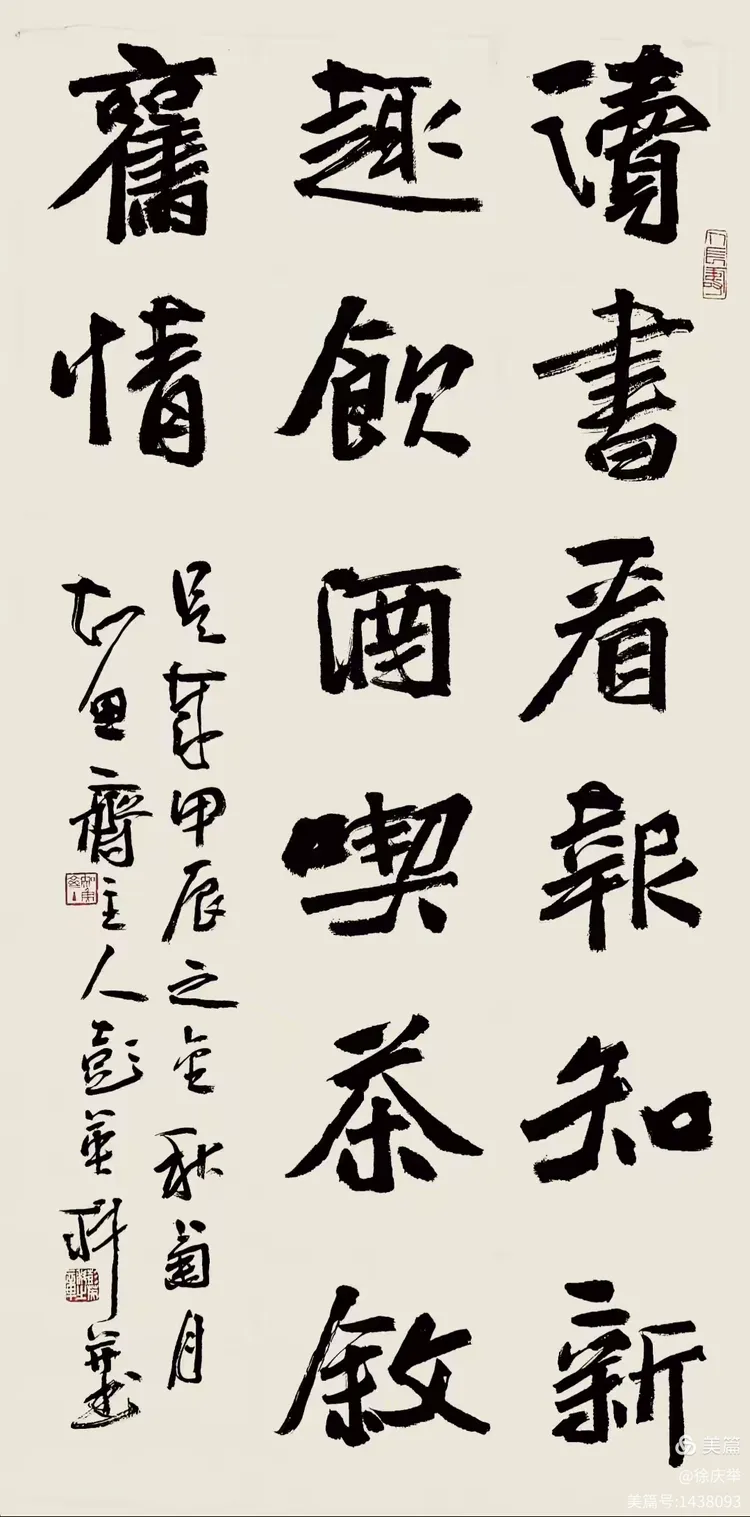 讀書看報知新
趣飲酒喫茶敘
舊情
是年甲辰之金秋菊月
知魚齋主人彭英科並書
美篇
@徐庆举
美篇号:1438093